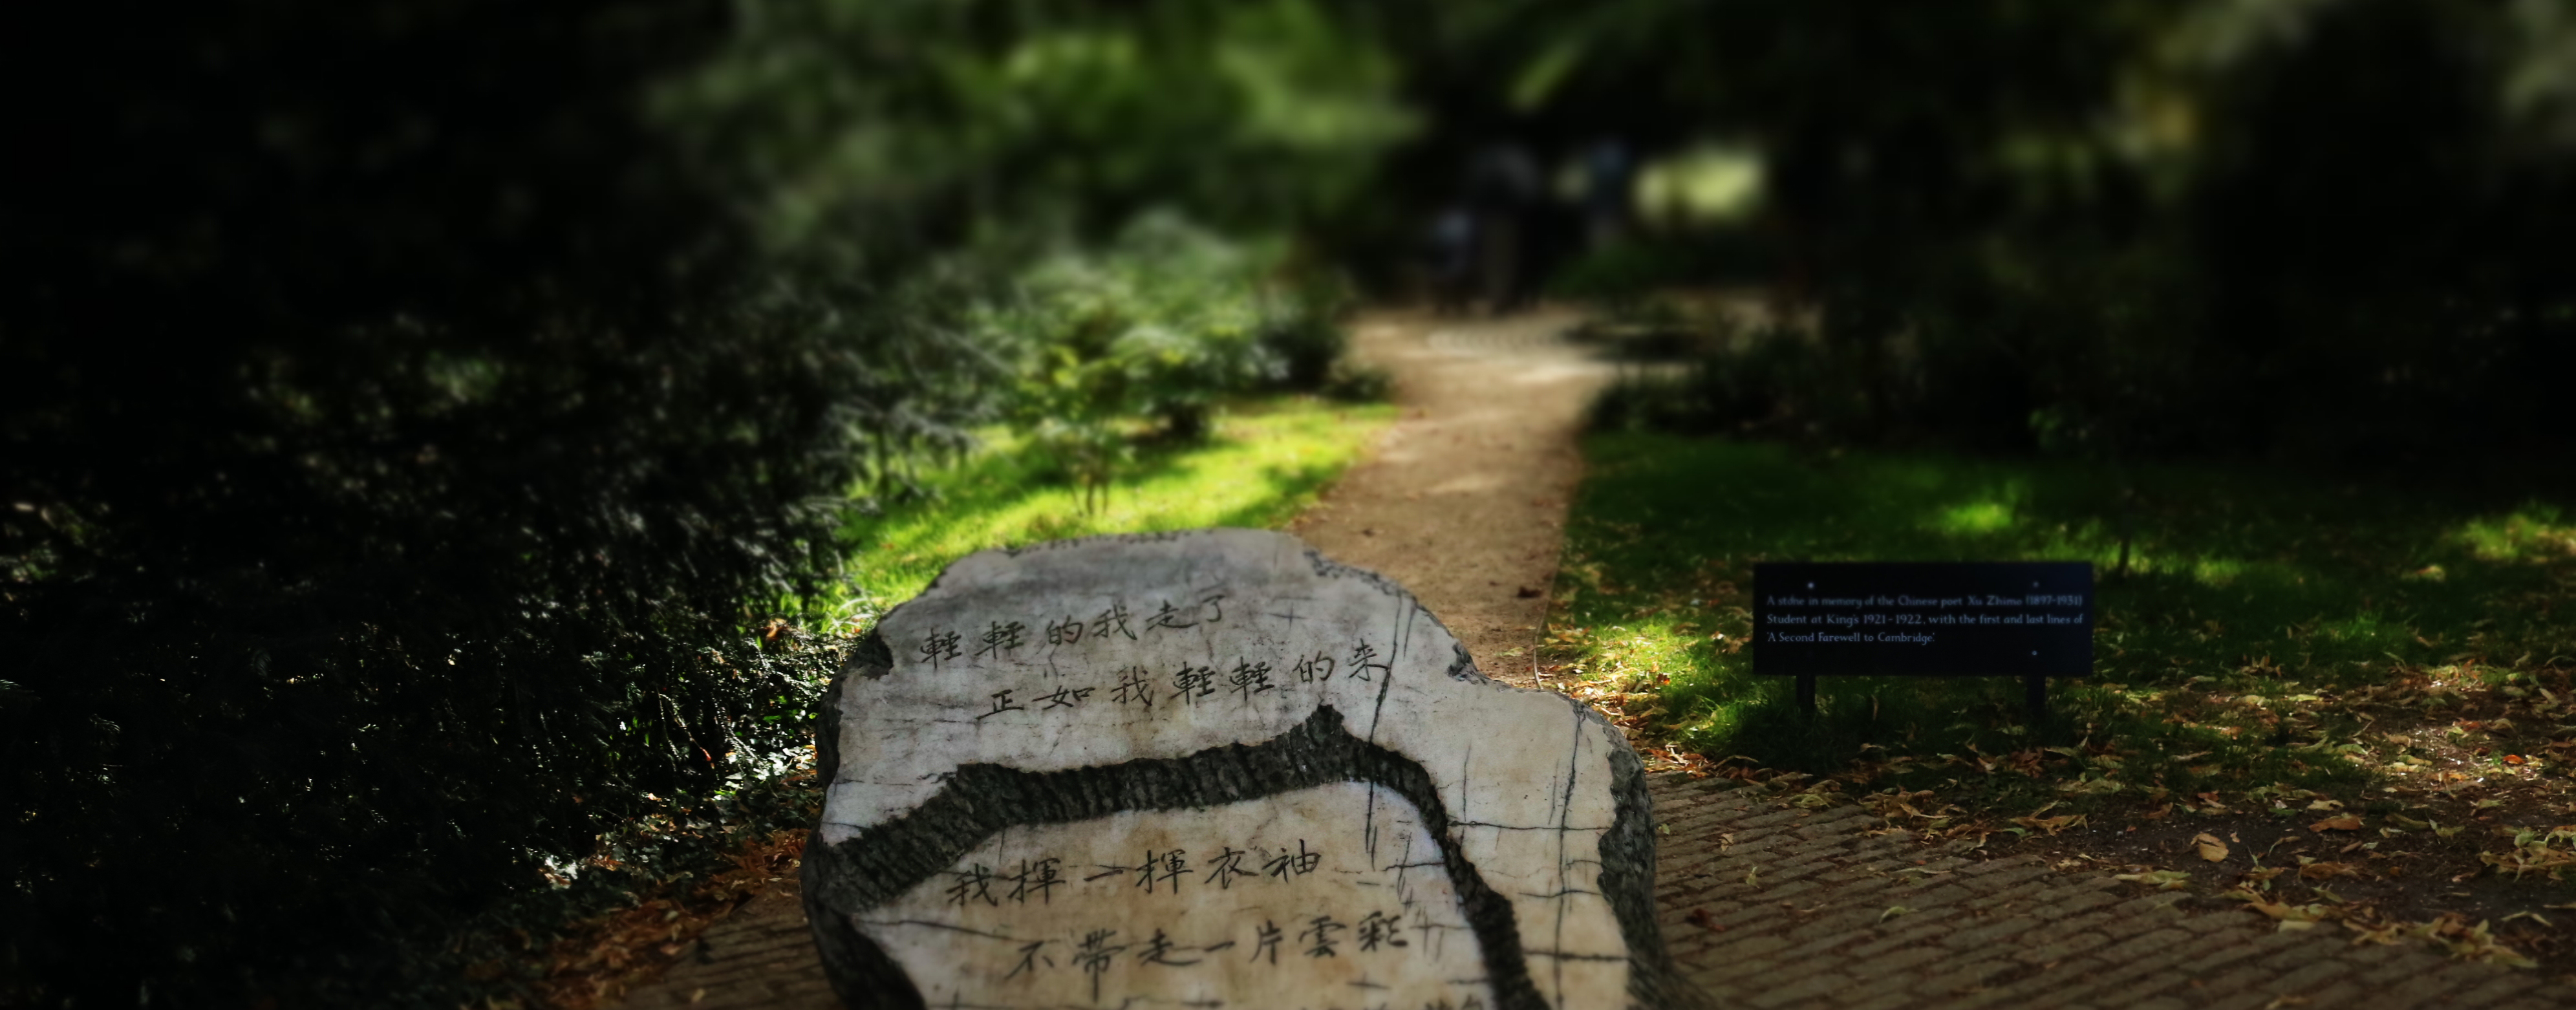 輕輕的我走了
正如我輕輕的来
我揮一揮衣袖
不帶走一片雲彩
A stone in memory of the Chinese poet Xu Zhimo (1897-1931)
Student at King's 1921-1922, with the first and last lines of
'A Second Farewell to Cambridge'